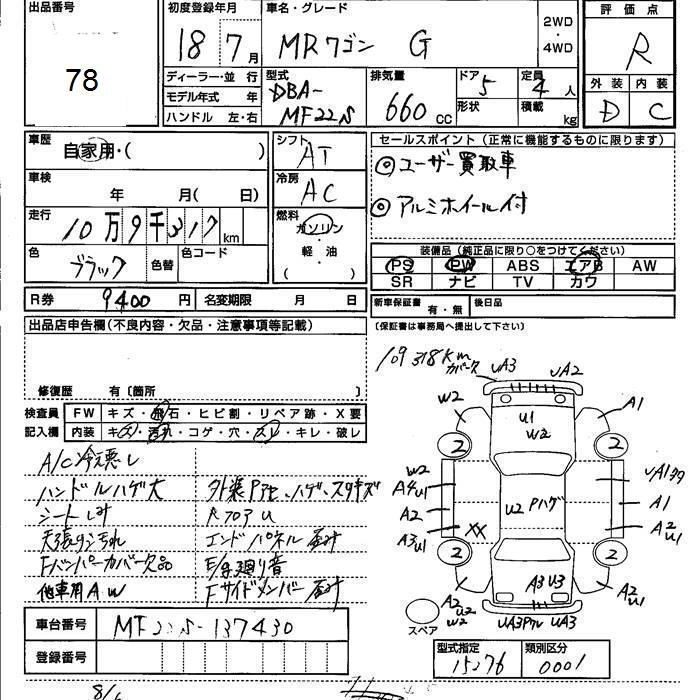 出品番号
78
初度登録年月
18 7月
車名・グレード
MRワゴン G
2WD
・
4WD
評価点
R
外装 内装
D C
ディーラー・並 行
モデル年式 年
ハンドル 左・右
型式
DBA-
MF22S
排気量
660 cc
ドア 5
形状
定員 4人
積載 kg
車歴
自家用・( )
シフト
AT
車検
年 月( 日)
冷房
AC
走行
10万9千317km
燃料
ガソリン
・
軽・油
( )
色
ブラック
色替
色コード
R券 9400円
名変期限 月 日
セールスポイント(正常に機能するものに限ります)
◎ユーザー買取車
◎アルミホイール付
装備品(純正品に限り○をつけてください)
PS PW ABS エアB AW
SR ナビ TV カワ
新車保証書 有・無
後日品
(保証書は事務局へ提出して下さい)
出品店申告欄(不良内容・欠品・注意事項等記載)
修復歴 有〔箇所 〕
検査員
記入欄
FW キズ・飛石・ヒビ割・リペア跡・X要
内装 キズ・汚れ・コゲ・穴・スレ・キレ・破レ
A/C冷え悪し
ハンドルハゲ大
シートしみ
天張り汚れ
Fバンパーカバー欠品
他車用AW
エンドパネル
E/g廻り音
Fサイドメンバー
109318km
UA3
UA2
W2
A1
U1
W2
2
2
W2
A4U1
A2
A3U1
U2 Pハゲ
XX
A1
A2
U1
2
2
A3U3
A2
U2
W2
A2
U1
UA3
UA3
スペア
車台番号 MF22S-137430
登録番号
型式指定
15276
類別区分
0001